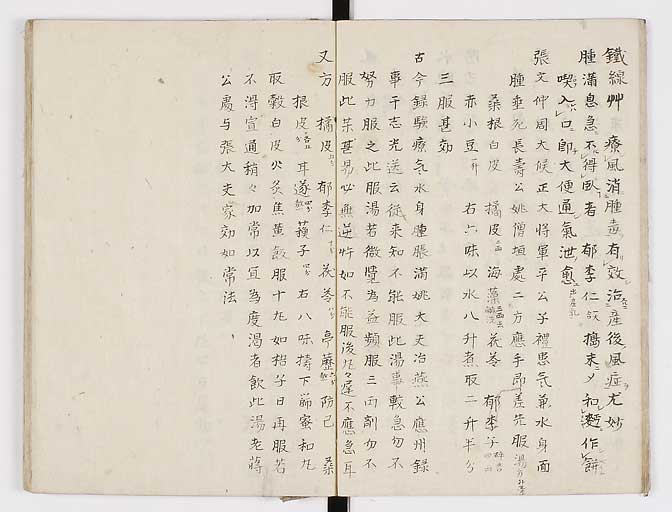 鐵線艸 療風消腫毒有效治產後風症尤妙
腫滿息急不得臥者 郁李仁 搗末〆和麵作餅
喫入口即大便通氣泄愈
張文仲周大候正大將軍平公子禮患氣兼水身面
腫垂死長壽公姚僧垣處二方應手即差先服湯
桑根白皮 橘皮 海藻 茯苓 郁李子
赤小豆一升 右六味以水八升煮取二升半分
三服甚効
古今録驗療氣水身腫脹滿姚大夫冶燕公應州録
事于志光送云從來知不能服此湯事較急勿不
努力服之此服湯若微覺為益頻服三両劑勿不
服此藥甚易必無逆忤如不能服後丸々遲不應急耳
又方 橘皮 郁李仁 茯苓 亭藶 防己 桑
根皮 甘遂 蘓子 右八味擣下篩蜜和丸
取穀白皮火炙焦黄飯服十丸如梧子日再服若
不得宣通稍々加常以宣為度渇者飲此湯老蔣
公處与張大夫家効如常法